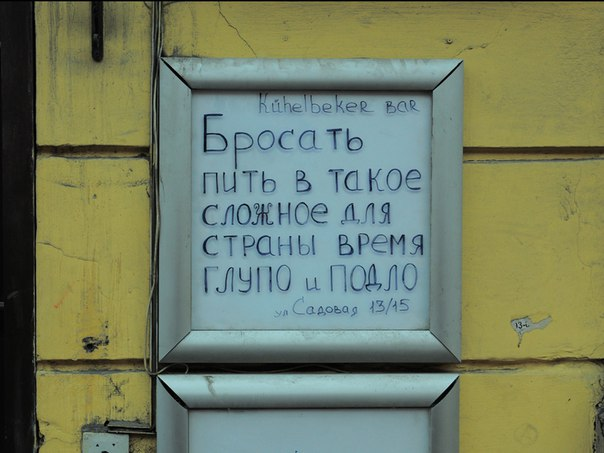 Kühelbeker BAR
Бросать
пить в такое
сложное для
страны время
глупо и подло
ул Садовая 13/15
13-6